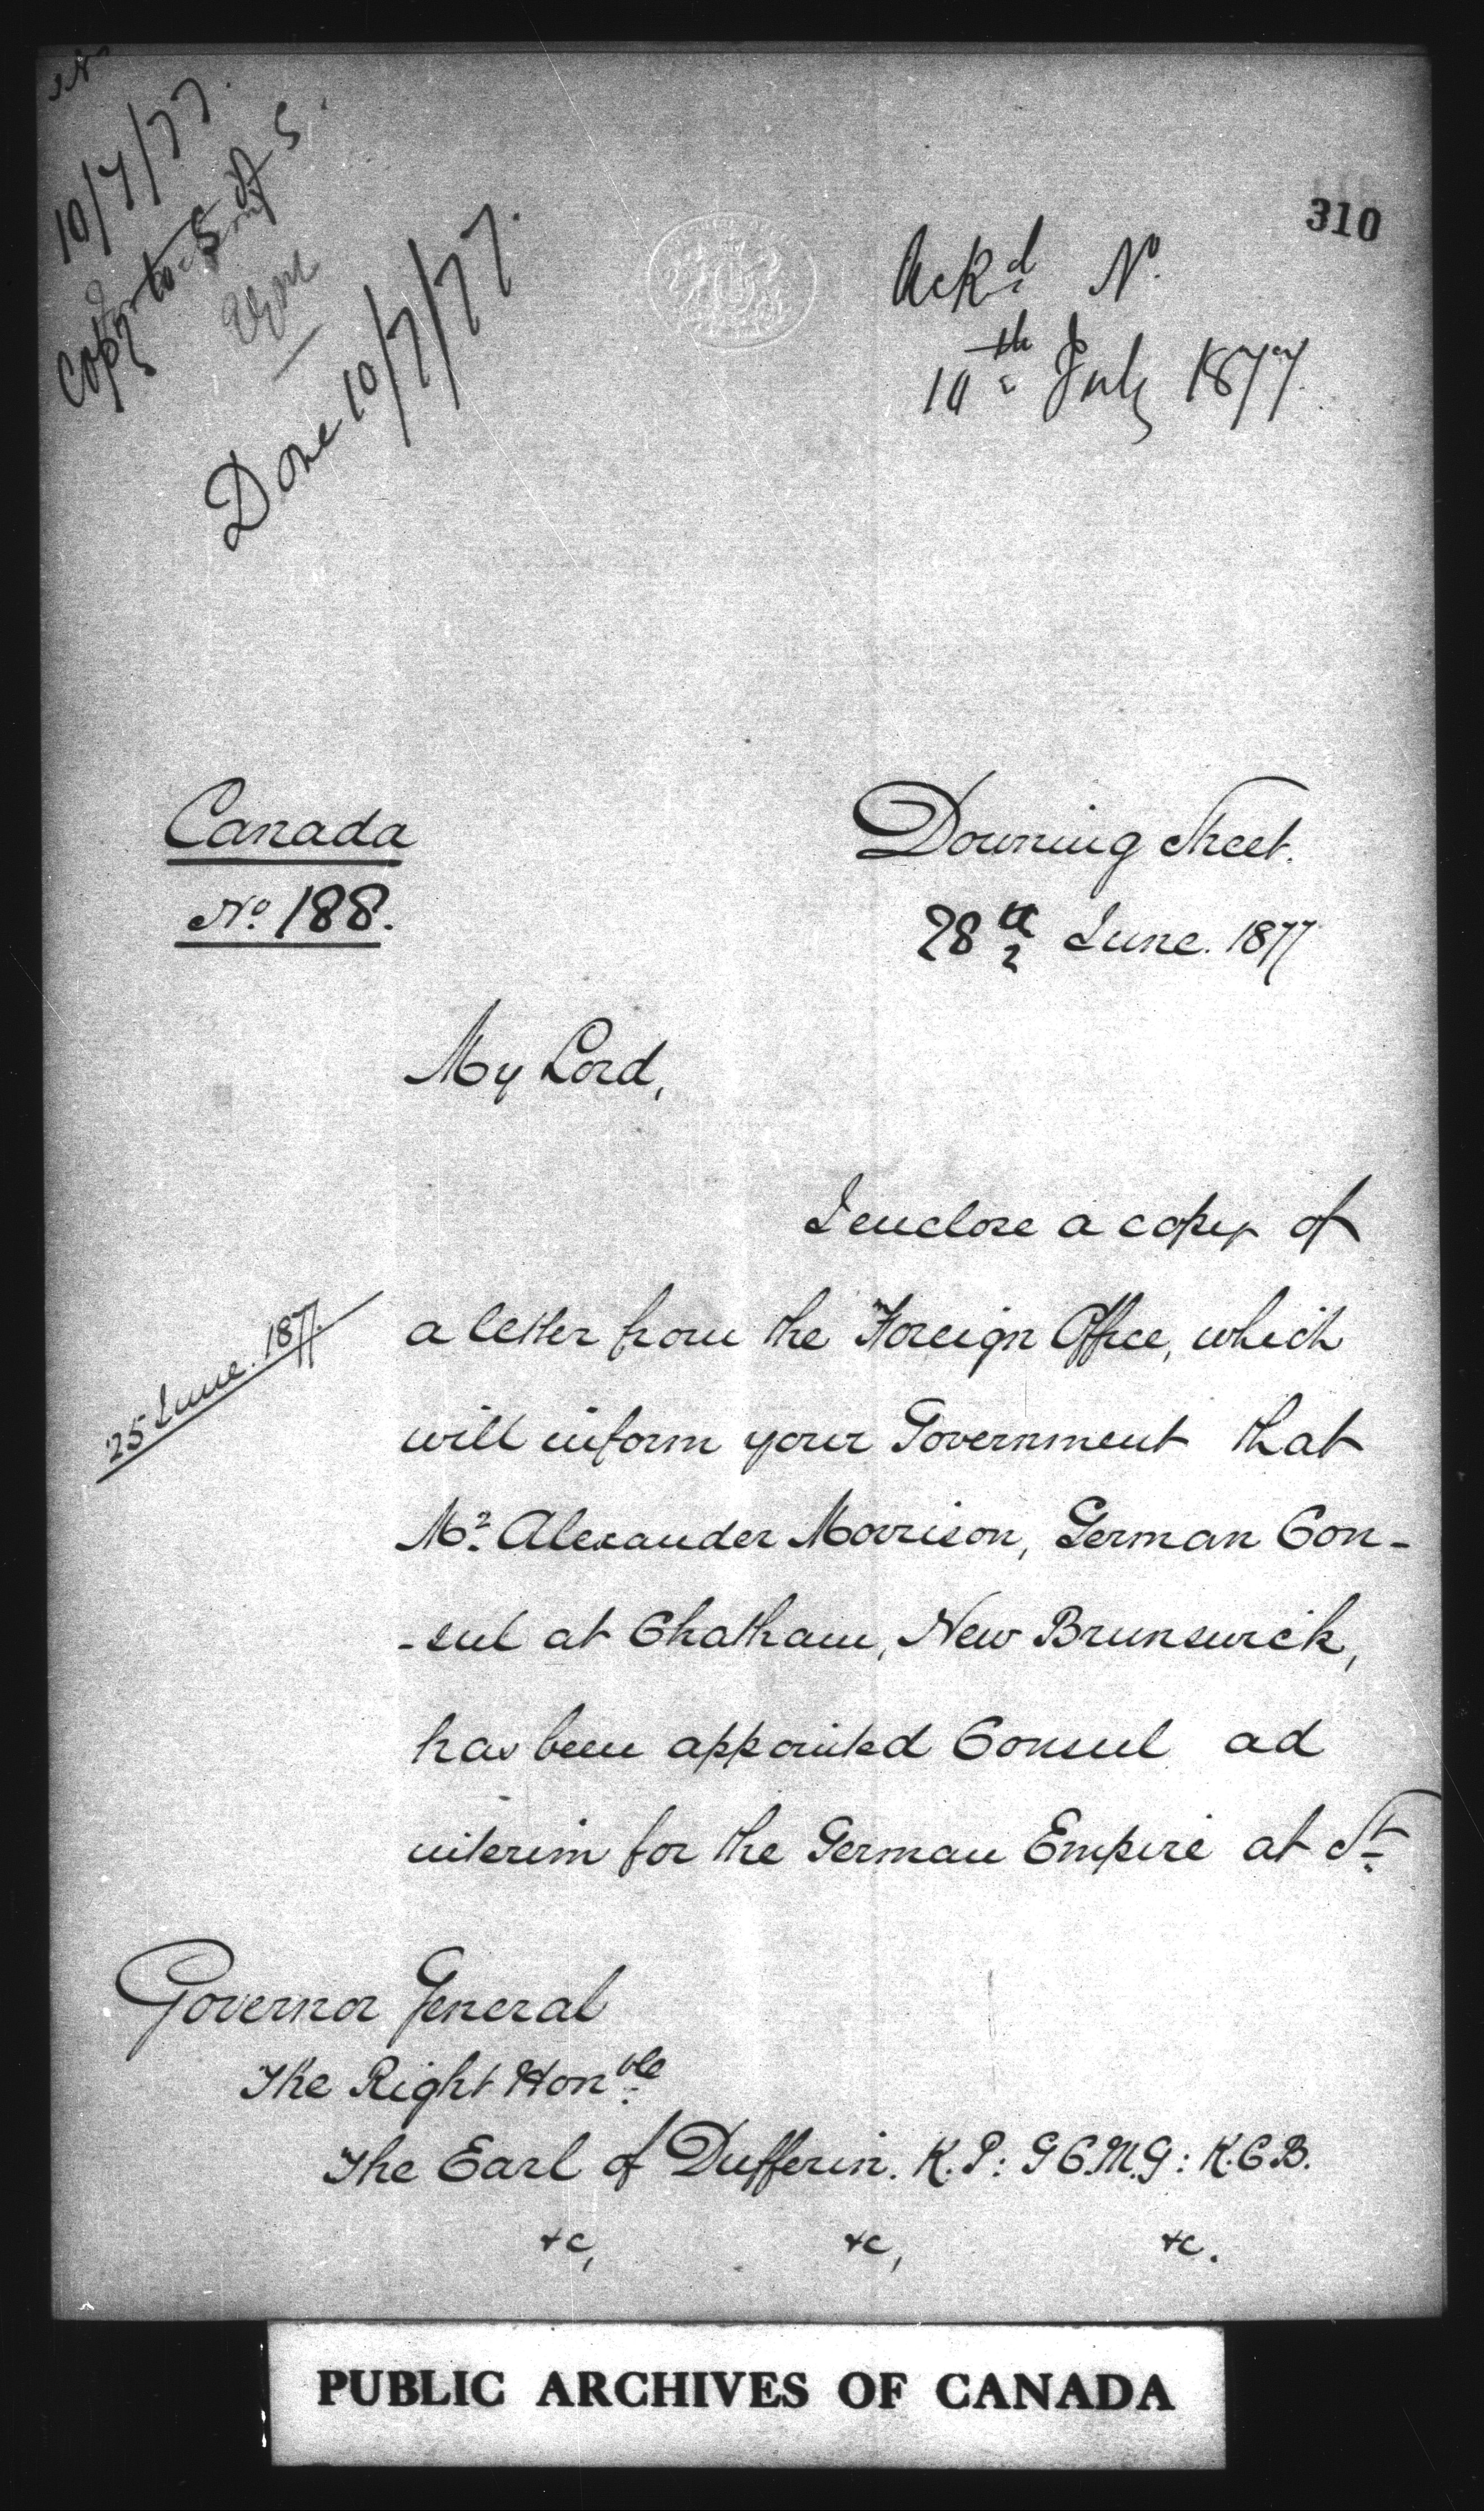 10/7/77.
Copy to S of S.
Done 10/7/77.
310
Ackd No
10th July 1877.
Canada
No. 188.
Downing Street.
28th June. 1877
My Lord,
I enclose a copy of
25 June. 1877.
a letter from the Foreign Office, which
will inform your Government that
Mr. Alexander Morrison, German Con-
-sul at Chatham, New Brunswick,
has been appointed Consul ad
interim for the German Empire at St.
Governor General
The Right Honble
The Earl of Dufferin. K.P: G C.M.G: K.C.B.
&c, &c, &c.
PUBLIC ARCHIVES OF CANADA